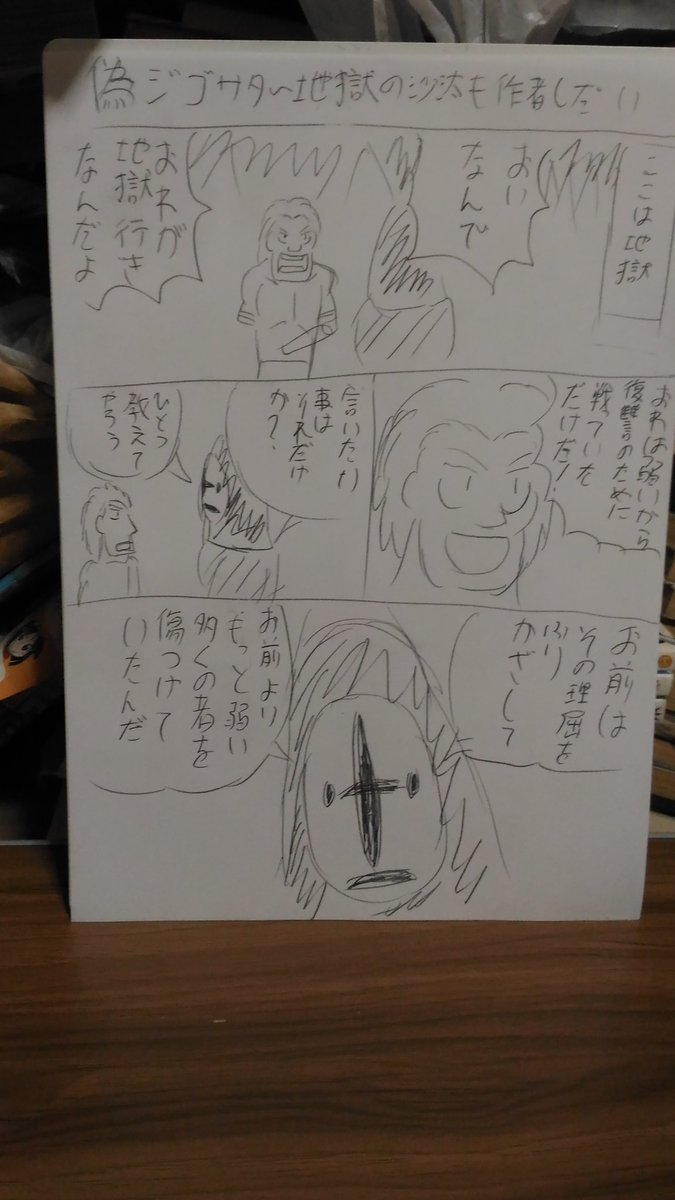 偽ジゴサタ〜地獄の沙汰も作者しだい
ここは地獄
おい
なんで
おれが
地獄行き
なんだよ
おれは弱いから
復讐のために
戦っていた
だけだ!
言いたい
事は
それだけ
か?
ひとつ
教えて
やろう
お前は
その理屈を
ふり
かざして
お前より
もっと弱い
多くの者を
傷つけて
いたんだ